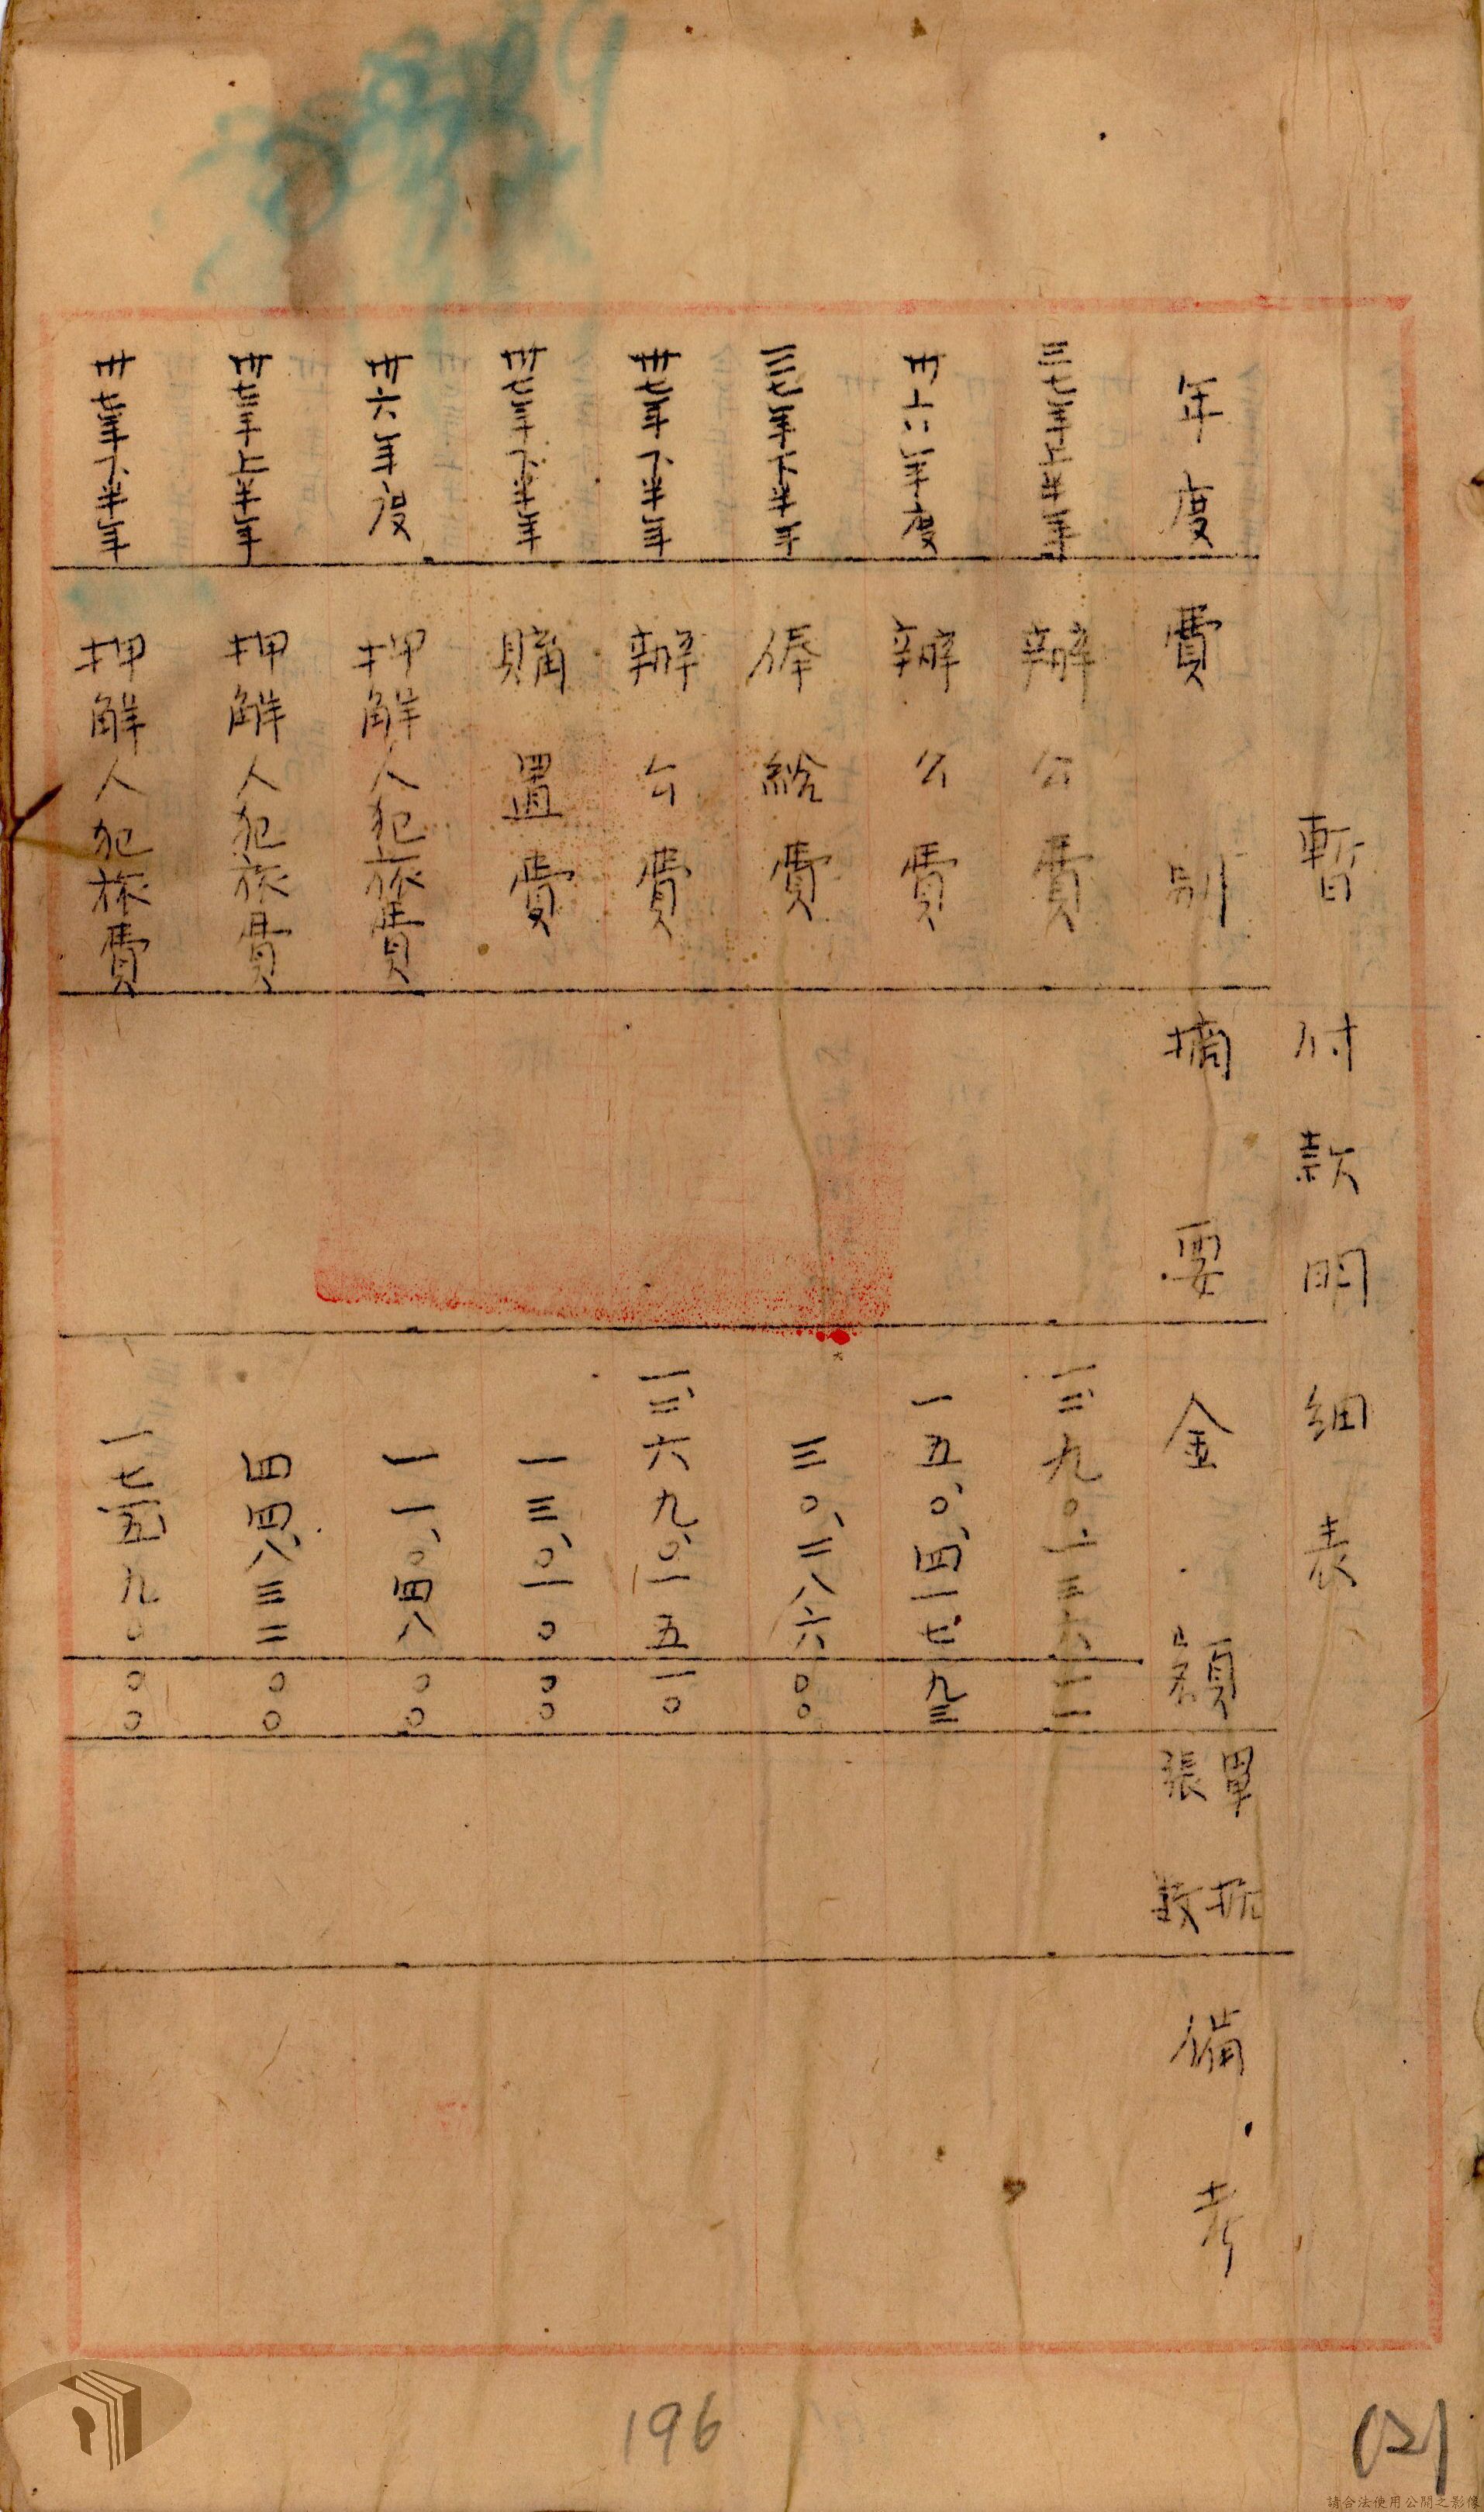 暫付款明細表
年度 費別 摘要 金額 單据張數 備考
三七年上半年 辦公費 一二九〇一三六一一
卅六年度 辦公費 一五〇、四一七九三
三七年下半年 俸給費 三〇、二八六〇〇
卅七年下半年 辦公費 一、三六九、〇一五一〇
卅七年下半年 購置費 一三〇、一〇〇〇
卅六年度 押解人犯旅費 一一、〇四八〇〇
卅七年上半年 押解人犯旅費 四四、八三二〇〇
卅七年下半年 押解人犯旅費 一七五九〇〇〇
196
(2)
請合法使用公開之影像